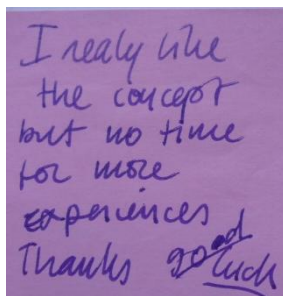 I realy like
the concept
but no time
for more
experiences
Thanks good
luck